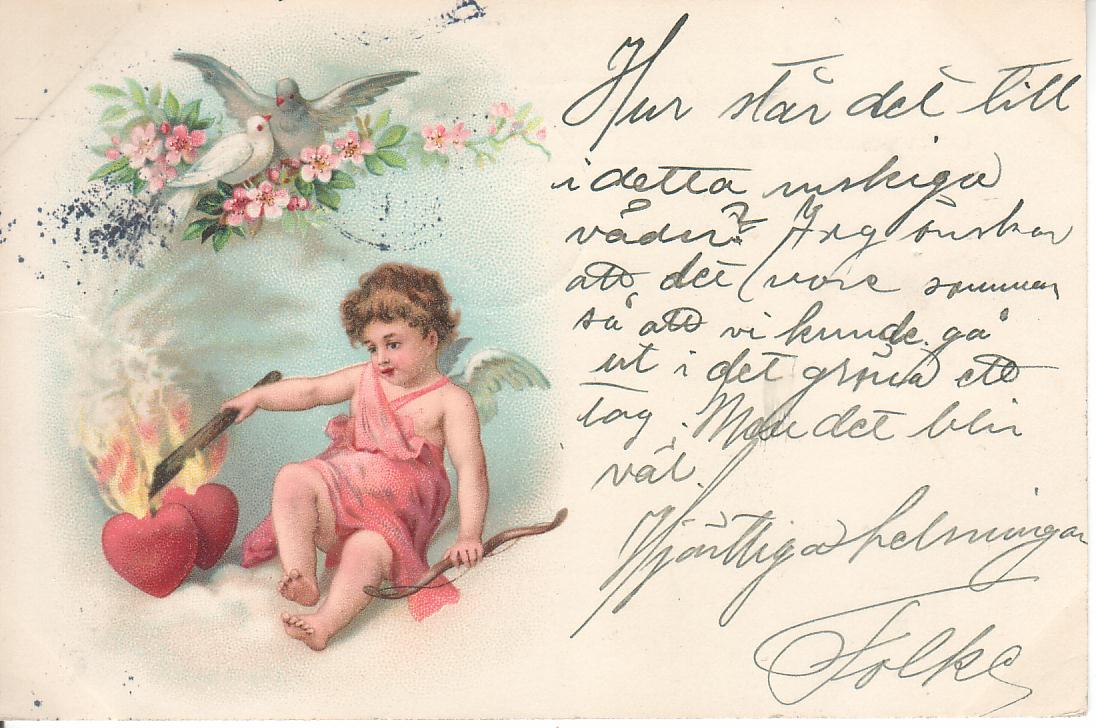 Hur står det till
i detta ruskiga
väder? Jag önskar
att det vore sommar
så att vi kunde gå
ut i det gröna ett
tag. Men det blir
väl.
Hjärtliga helsningar
Folke